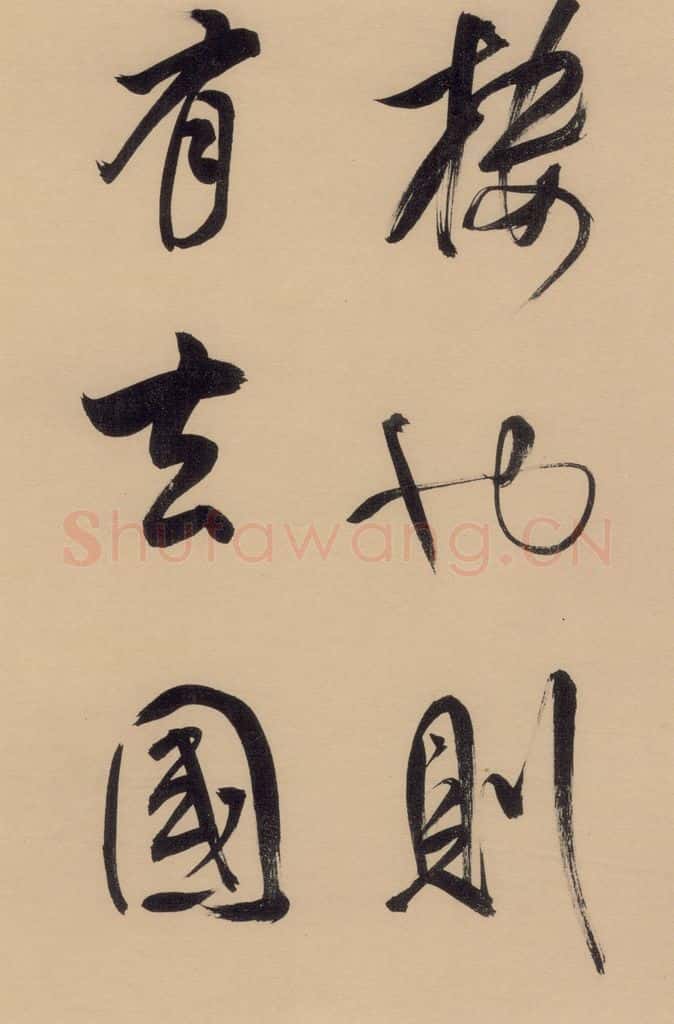 樓也則
有去國
Shufawang.CN